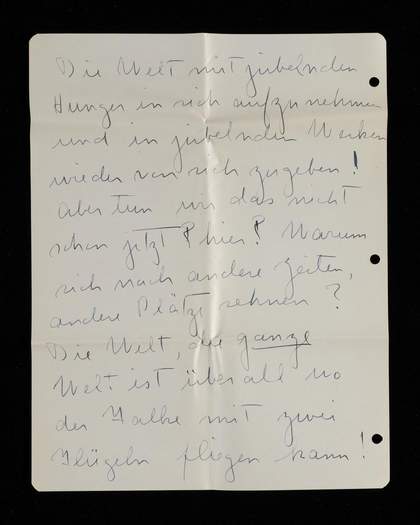 Die Welt mit jubelnden
Hunger in sich aufzunehmen
und in jubelnden Werken
wieder von sich zugeben!
Aber tun wir das nicht
schon jetzt? hier? Warum
sich nach andere Zeiten,
andere Plätze sehnen?
Die Welt, die ganze
Welt ist überall wo
der Falke mit zwei
Flügeln fliegen kann!